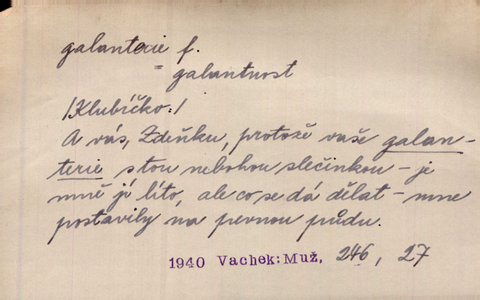 galanterie f.
= galantnost
/Klubíčko:/
A vás, Zdeňku, protože vaše galan-
terie s tou nebohou slečinkou – je
mně jí líto, ale co se dá dělat – mne
postavily na pevnou půdu.
1940 Vachek: Muž, 246, 27